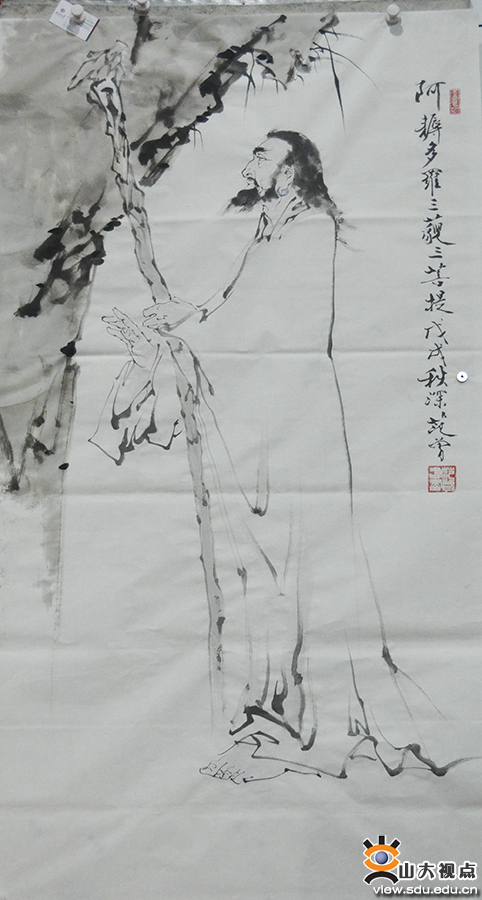 阿耨多羅三藐三菩提戊戌秋深范曾
山大视点
view.sdu.edu.cn